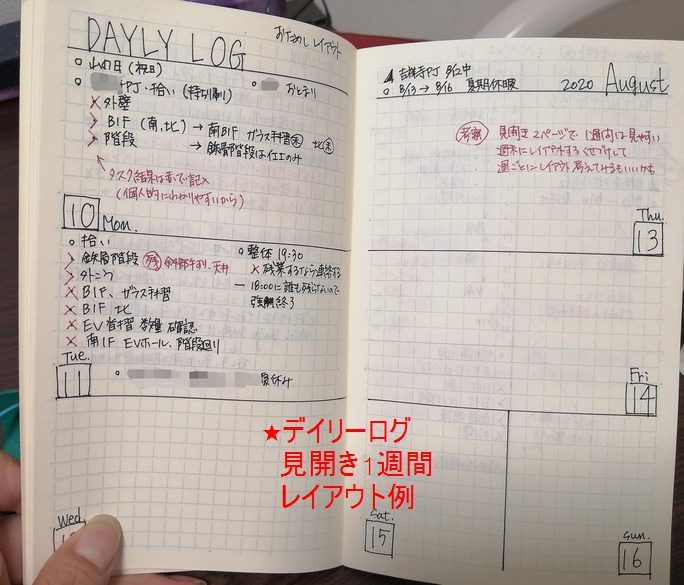 DAYLY LOG
おためしレイアウト
○ 山の日(祝日)
○ PJ・拾い(持ち帰り)
○ おとまり
× 外壁
> B1F(南、北) → 南B1F ガラス料習 未 北 未
> 階段 → 鉄骨階段は仕上のみ
↖ タスク結果は赤で記入
(個人的にわかりやすいから)
10 Mon.
○ 拾い
> 鉄骨階段 残
> 外こう
× B1F、ガラス
× B1F 北
× EV 数量 確認
× 南1F EVホール、階段廻り
○ 整体 19:30
× 残業するなら連絡する
― 18:00に誰も残らないので
強制終了
Tue.
11
○ 夏休み
Wed
吉祥寺PJ 8/12中
○ 8/13 → 8/16 夏期休暇
2020 August
考察 見開き2ページで1週間は見やすい
週末にレイアウトするくせづけして
週ごとにレイアウト考えてみるもいいかも
Thu.
13
Fri
14
★デイリーログ
見開き1週間
レイアウト例
Sat.
15
Sun.
16